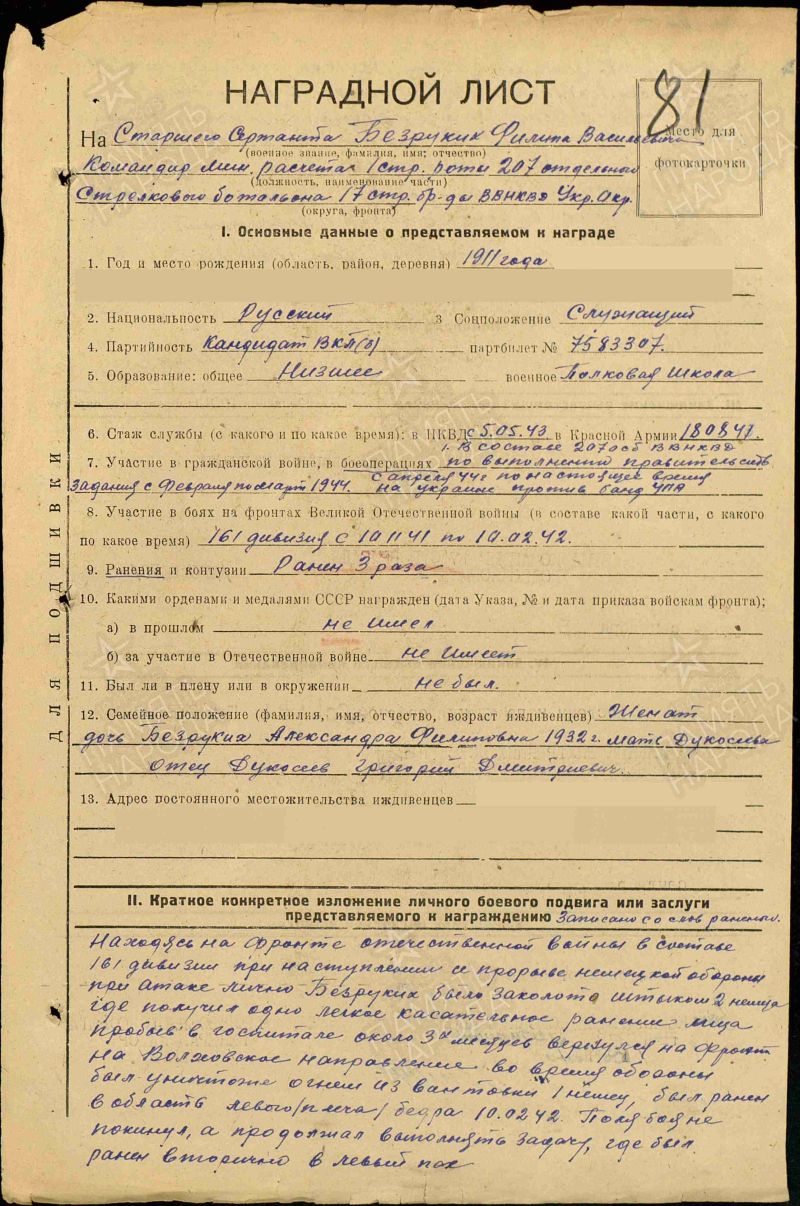 81
НАГРАДНОЙ ЛИСТ
Место для
фотокарточки
На Старшего Сержанта Безруких Филипа Васильевича
(военное звание, фамилия, имя, отчество)
Командир мин. расчета 1 стр. роты 207 отдельного
(должность, наименование части)
Стрелкового батальона 17 стр. бр-ды ВВНКВД Укр. Окр.
(округа, фронта)
I. Основные данные о представляемом к награде
1. Год и место рождения (область, район, деревня) 1911 года
2. Национальность Русский 3 Соцположение Служащий
4. Партийность Кандидат ВКП(б) партбилет № 7583307.
5. Образование: общее Низшее военное Полковая школа
6. Стаж службы (с какого и по какое время): в НКВД с 5.05.43 в Красной Армии 180841.
1. В составе 207 осб ВВНКВД
7. Участие в гражданской войне, в боеоперациях по выполнению правительств
задания с Февраля по март 1944. С апреля 44 г по настоящее время
на украине против банд УПА
8. Участие в боях на фронтах Великой Отечественной войны (в составе какой части, с какого
по какое время) 161 дивизия с 10 11 41 по 10.02.42.
9. Ранения и контузии Ранен 3 раза
10. Какими орденами и медалями СССР награжден (дата Указа, № и дата приказа войскам фронта);
а) в прошлом не имел
б) за участие в Отечественной войне не имеет
11. Был ли в плену или в окружении не был.
12. Семейное положение (фамилия, имя, отчество, возраст иждивенцев) Женат
дочь Безруких Александра Филиповна 1932 г. мать
отец Григорий Дмитриевич.
13. Адрес постоянного местожительства иждивенцев
II. Краткое конкретное изложение личного боевого подвига или заслуги
представляемого к награждению Записано со слов раненых.
Находясь на Фронте отечественной войны в составе
161 дивизии при наступлении и прорыве немецкой обороны
при атаке лично Безруких было заколото штыком 2 немца
где получил одно легкое касательное ранение лица
пробыв в госпитале около 3х месяцев вернулся на Фронт
на Волховское направление во время обороны
был уничтоже огнем из вантовки 1 немец, был ранен
в область левого /плеча/ бедра 10.02 42. Поля боя не
покинул, а продолжал выполнять задачу, где был
ранен вторично в левый пах
ДЛЯ ПОДШИВКИ
ПАМЯТЬ
НАРОДА